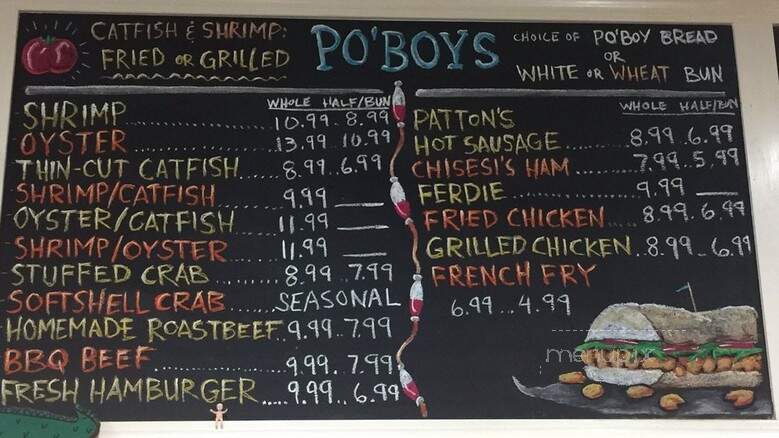 CATFISH & SHRIMP:
FRIED OR GRILLED
PO'BOYS
CHOICE OF PO'BOY BREAD
OR
WHITE OR WHEAT BUN
WHOLE HALF/BUN
SHRIMP ..... 10.99..8.99
OYSTER ..... 13.99 10.99
THIN-CUT CATFISH.... 8.99..6.99
SHRIMP/CATFISH 9.99 ___
OYSTER/CATFISH 11.99 ___
SHRIMP/OYSTER 11.99 ___
STUFFED CRAB ..... 8.99 7.99
SOFTSHELL CRAB .....SEASONAL
HOMEMADE ROASTBEEF 9.99..7.99
BBQ BEEF ..... 9.99..7.99
FRESH HAMBURGER..... 9.99..6.99
WHOLE HALF/BUN
PATTON'S
HOT SAUSAGE.....8.99..6.99
CHISESI'S HAM.....7.99..5.99
FERDIE..... 9.99 ___
FRIED CHICKEN... 8.99..6.99
GRILLED CHICKEN..8.99..6.99
FRENCH FRY
6.99...4.99
menupix